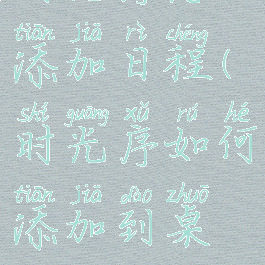 tiān jiā rì chéng
添加日程(
shí guāng xù rú hé
时光序如何
tiān jiā dào zhuō
添加到桌